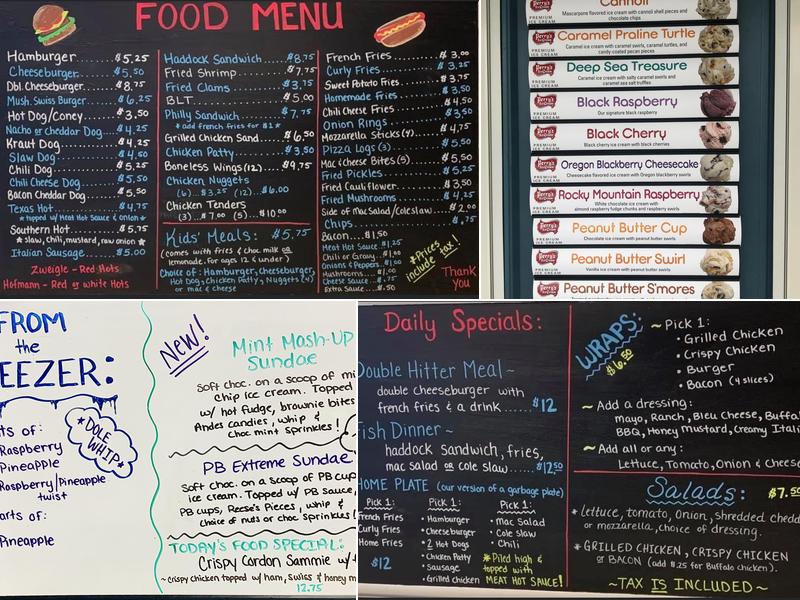 FOOD MENU
Hamburger $5.25
Cheeseburger $5.50
Dbl. Cheeseburger $8.75
Mush. Swiss Burger $6.25
Hot Dog/Coney $3.50
Nacho or cheddar Dog $4.25
Kraut Dog $4.25
Slaw Dog $4.50
Chili Dog $5.25
Chili Cheese Dog $5.50
Bacon Cheddar Dog $5.50
Texas Hot $4.75
* topped w/ Meat Hot Sauce & onion *
Southern Hot $5.75
* slaw, chili, mustard, raw onion *
Italian Sausage $5.00
Zweigle - Red Hots
Hofmann - Red or white Hots
Haddock Sandwich $8.75
Fried Shrimp $7.75
Fried Clams $3.75
BLT $5.00
Philly Sandwich $7.75
* add french fries for $2 *
Grilled Chicken Sand $6.50
Chicken Patty $3.50
Boneless Wings (12) $9.75
Chicken Nuggets
(6) $3.25 (12) $6.00
Chicken Tenders
(3) $7.00 (5) $10.00
Kids' Meals: $5.75
(comes with fries & choc milk or
lemonade. for ages 12 & under)
Choice of: Hamburger, cheeseburger,
Hot Dog, Chicken Patty, Nuggets (4)
or mac & cheese
French Fries $3.00
Curly Fries $3.25
Sweet Potato Fries $3.75
Homemade Fries $3.50
Chili Cheese Fries $4.50
Onion Rings
Mozzarella Sticks (4) $4.75
Pizza Logs (3) $5.50
Mac & Cheese Bites (5) $5.50
Fried Pickles $5.25
Fried Cauliflower $3.50
Fried Mushrooms $4.25
Side of Mac Salad/Coleslaw $2.00
Chips $.75
Bacon $1.50
Meat Hot Sauce $1.25
Chili or Gravy $1.00
Onions & Peppers $1.00
Mushrooms $1.00
Cheese Sauce $.75
Extra Sauce $.50
*Prices
include tax!
Thank
you
Cannoli
Mascarpone flavored ice cream with cannoli shell pieces and
chocolate chips
Perry's
PREMIUM
ICE CREAM
Caramel Praline Turtle
Caramel ice cream with caramel swirls, caramel turtles, and
candy coated pecan pieces
Deep Sea Treasure
Caramel ice cream with salty caramel swirls and
caramel sea salt truffles
Black Raspberry
Our signature black raspberry
Black Cherry
Black cherry ice cream with black cherries
Oregon Blackberry Cheesecake
Cheesecake flavored ice cream with Oregon blackberry swirls
Rocky Mountain Raspberry
White chocolate ice cream with
almond raspberry fudge chunks and raspberry swirls
Peanut Butter Cup
Chocolate ice cream with peanut butter swirls
Peanut Butter Swirl
Vanilla ice cream with peanut butter swirls
Peanut Butter S'mores
FROM
the
EEZER:
*DOLE
WHIP*
ts of:
Raspberry
Pineapple
Raspberry/Pineapple
twist
arts of:
Pineapple
New!
Mint Mash-Up
Sundae
Soft choc. on a scoop of mi
chip ice cream. Topped
w/ hot fudge, brownie bites
Andes candies, whip &
choc mint sprinkles!
PB Extreme Sundae
Soft choc. on a scoop of PB cup
ice cream. Topped w/ PB sauce,
PB cups, Reese's Pieces, whip &
choice of nuts or choc sprinkles!
TODAY'S FOOD SPECIAL:
Crispy Cordon Sammie w/
~crispy chicken topped w/ ham, swiss & honey m
12.75
Daily Specials:
Double Hitter Meal~
double cheeseburger with
french fries & a drink $12
Fish Dinner ~
haddock sandwich, fries,
mac salad or cole slaw $12.50
HOME PLATE (our version of a garbage plate)
Pick 1:
French Fries
Curly Fries
Home Fries
$12
Pick 1:
• Hamburger
• Cheeseburger
• 2 Hot Dogs
• Chicken Patty
• Sausage
• Grilled chicken
Pick 1:
• Mac Salad
• Cole Slaw
• Chili
*Piled high &
topped with
MEAT HOT SAUCE!
WRAPS:
$6.50
~ Pick 1:
• Grilled Chicken
• Crispy Chicken
• Burger
• Bacon (4 slices)
~ Add a dressing:
mayo, Ranch, Bleu Cheese, Buffal
BBQ, Honey mustard, Creamy Itali
~ Add all or any:
Lettuce, Tomato, Onion & Cheese
Salads: $7.50
* Lettuce, tomato, Onion, Shredded chedd
or mozzarella, choice of dressing.
* GRILLED CHICKEN, CRISPY CHICKEN
or BACON (add $1.25 for Buffalo chicken).
~TAX IS INCLUDED~